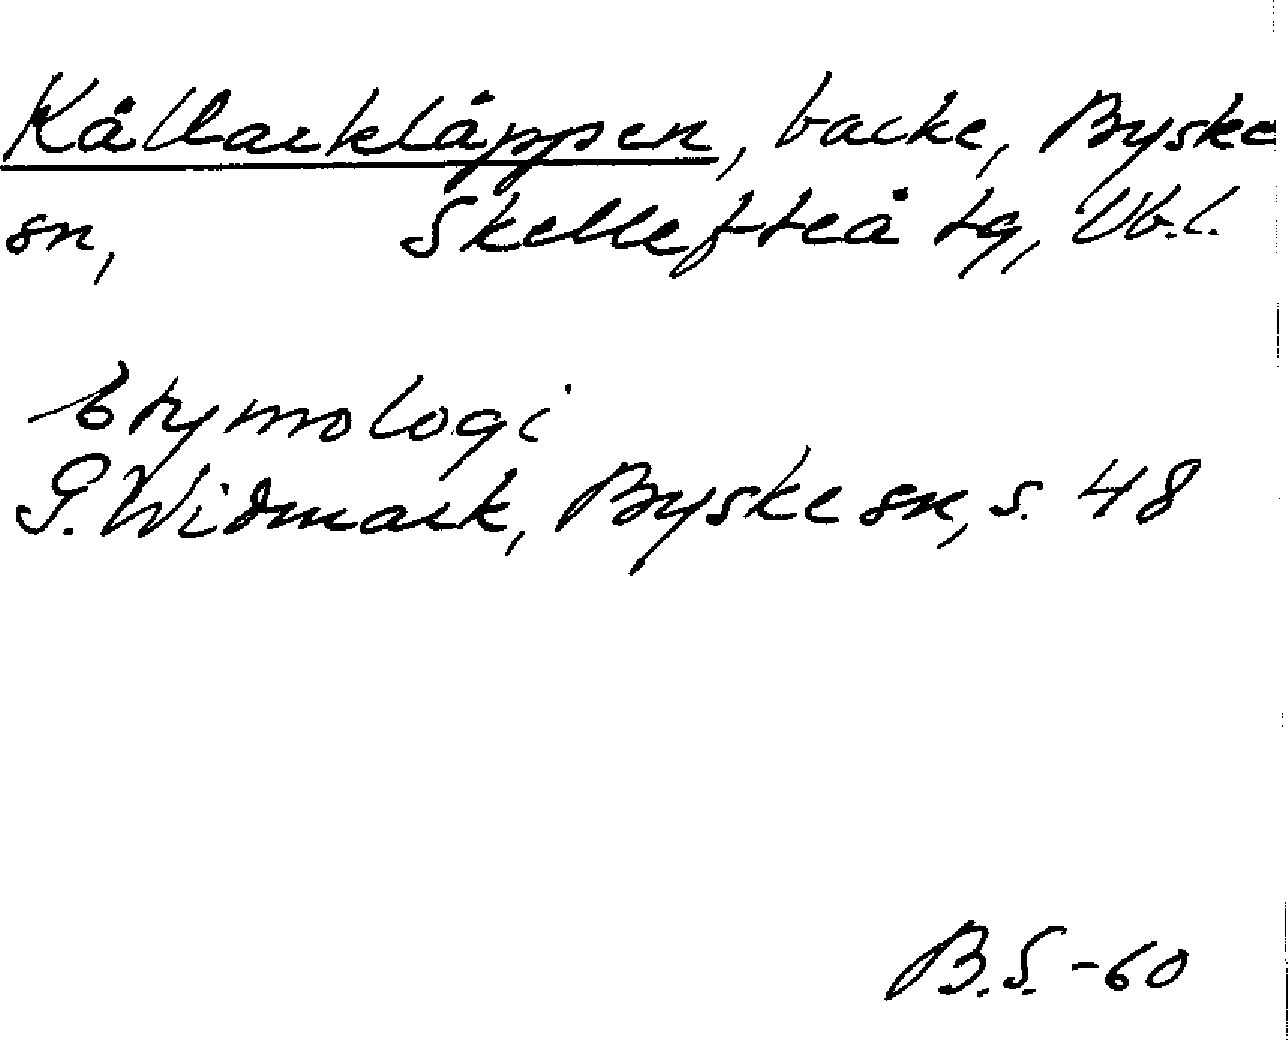 Källarkläppen, backe, Byske
sn, Skellefteå tg, Vb.l.
Etymologi
G. Widmark, Byske sn, s. 48
B.S.-60